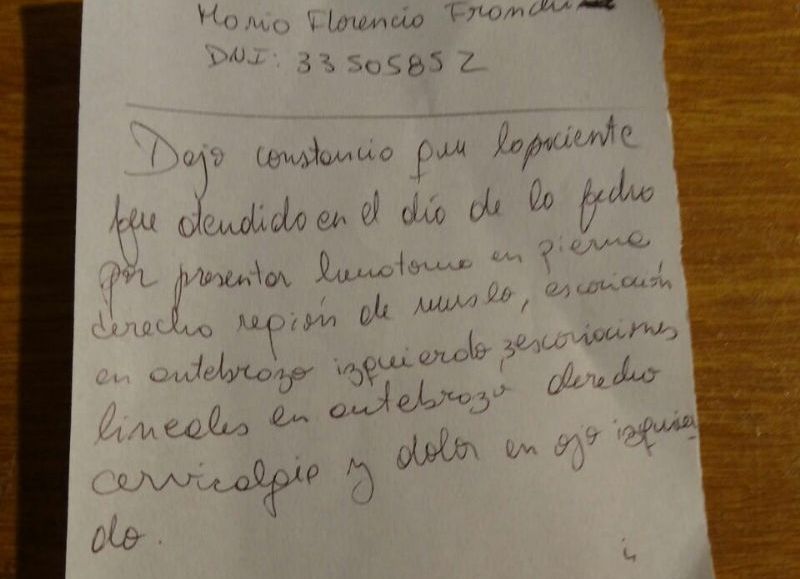 María Florencia
DNI: 33505852
Dejo constancia que la paciente
fue atendida en el día de la fecha
por presentar hematoma en pierna
derecha región de muslo, escoriación
en antebrazo izquierdo, 3 escoriaciones
lineales en antebrazo derecho
cervicalgia y dolor en ojo izquier
do.